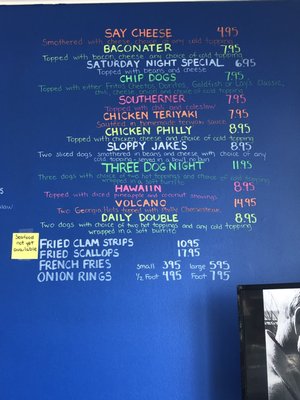 SAY CHEESE 4.95
Smothered with cheese choice of any cold topping
BACONATER 7.95
Topped with bacon cheese any choice of cold topping
SATURDAY NIGHT SPECIAL 6.95
Topped with beans and cheese
CHIP DOGS 7.95
Topped with either Fritos Cheetos Doritos, Goldfish or Lays Classic,
cheese and choice of cold topping
SOUTHERNER 7.95
Topped with chili and coleslaw
CHICKEN TERIYAKI 7.95
Sautéed in homemade teriyaki sauce
CHICKEN PHILLY 8.95
Topped with chicken cheese and choice of cold topping
SLOPPY JAKES 8.95
Two sliced dogs smothered in beans and cheese with choice of any
cold topping - served in a bowl no bun
THREE DOG NIGHT 11.95
Three dogs with choice of two hot toppings and any cold topping
wrapped in a soft burrito
HAWAIIN 8.95
Topped with diced pineapple and coconut shavings
VOLCANO 14.95
Two Georgia Hots topped with Philly Cheesesteak
DAILY DOUBLE 8.95
Two dogs with choice of two hot toppings and any cold topping
wrapped in a soft burrito
slaw
Seafood
not yet
available
FRIED CLAM STRIPS 10.95
FRIED SCALLOPS 17.95
FRENCH FRIES small 3.95 large 5.95
ONION RINGS 1/2 Foot 4.95 Foot 7.95